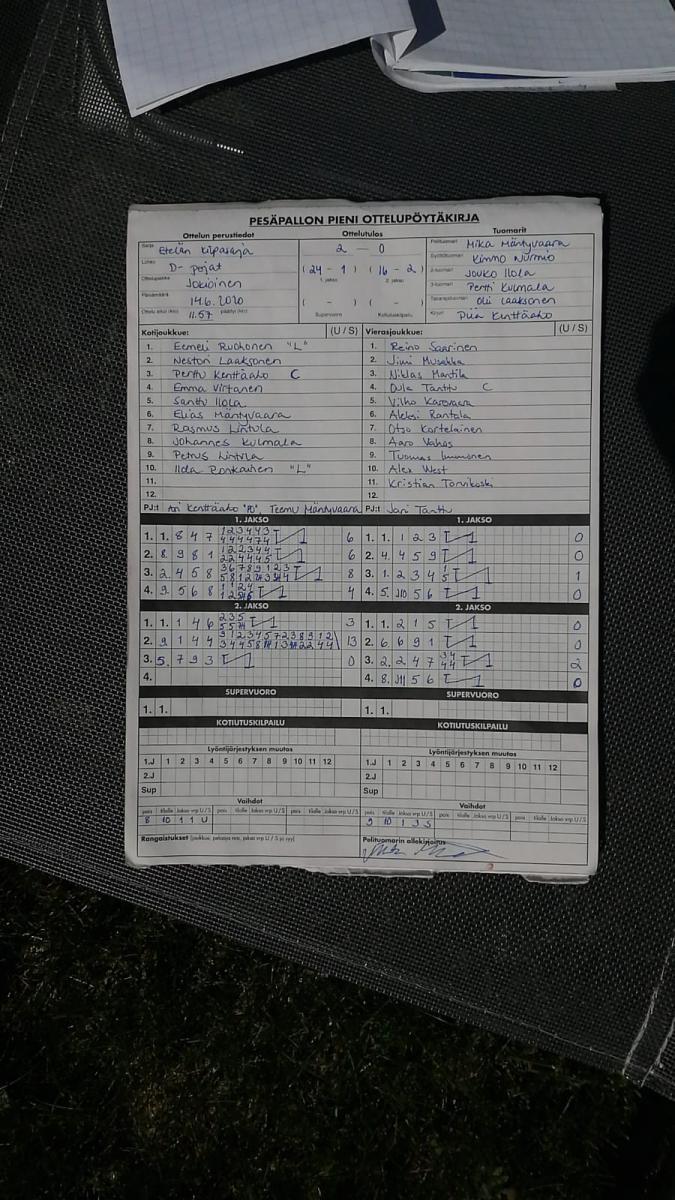 PESÄPALLON PIENI OTTELUPÖYTÄKIRJA
Ottelun perustiedot Ottelutulos Tuomarit
Sarja Etelän kilpasarja
Lohko D-pojat
Ottelupaikka Jokioinen
Päivämäärä 14.6.2020
Ottelu alkoi (klo) 11.57 päättyi (klo)
2 - 0
(24 - 1) (16 - 2)
1. jakso 2. jakso
( - ) ( - )
Supervuoro Kotiutuskilpailu
Pelituomari Mika Mäntyvaara
Syöttötuomari Kimmo Nurmio
2-tuomari Jouko Ilola
3-tuomari Pertti Kulmala
Takarajatuomari Olli Laaksonen
Kirjuri Piia Kenttäaho
Kotijoukkue: (U / S)
1. Eemeli Ruohonen "L"
2. Nestori Laaksonen
3. Perttu Kenttäaho C
4. Emma Virtanen
5. Santtu Ilola
6. Elias Mäntyvaara
7. Rasmus Lintula
8. Johannes Kulmala
9. Petrus Lintula
10. Iida Ronkainen "L"
11.
12.
PJ:t Ari Kenttäaho "PJ", Teemu Mäntyvaara
Vierasjoukkue: (U / S)
1. Reino Saarinen
2. Jimi
3. Niklas Mantila
4. Tanttu C
5. Vilho
6. Aleksi Rantala
7. Otso Kortelainen
8. Aaro
9. Tuomas Immonen
10. Alex West
11. Kristian Torvikoski
12.
PJ:t Jari Tanttu
1. JAKSO 1. JAKSO
1. 1. 8 4 7 6
2. 8. 9 8 1 6
3. 2. 4 5 8 8
4. 9. 5 6 8 4
1. 1. 1 2 3 0
2. 4. 4 5 9 0
3. 1. 2 3 4 1
4. 5. J10 5 6 0
2. JAKSO 2. JAKSO
1. 1. 1 4 6 3
2. 9. 1 4 4 13
3. 5. 7 9 3 0
4.
1. 1. 2 1 5 0
2. 6. 6 9 1 0
3. 2. 2 4 7 2
4. 8. J11 5 6 0
SUPERVUORO SUPERVUORO
1. 1. 1. 1.
KOTIUTUSKILPAILU KOTIUTUSKILPAILU
Lyöntijärjestyksen muutos Lyöntijärjestyksen muutos
1.J 1 2 3 4 5 6 7 8 9 10 11 12 1.J 1 2 3 4 5 6 7 8 9 10 11 12
2.J 2.J
Sup Sup
Vaihdot Vaihdot
pois tilalle Jakso vrp U / S pois tilalle Jakso vrp U / S pois tilalle Jakso vrp U / S
8 10 1 1 U
pois tilalle Jakso vrp U / S pois tilalle Jakso vrp U / S pois tilalle Jakso vrp U / S
9 10 1 3 S
Rangaistukset (joukkue, pelaaja nro, jakso vrp U / S ja syy)
Pelituomarin allekirjoitus